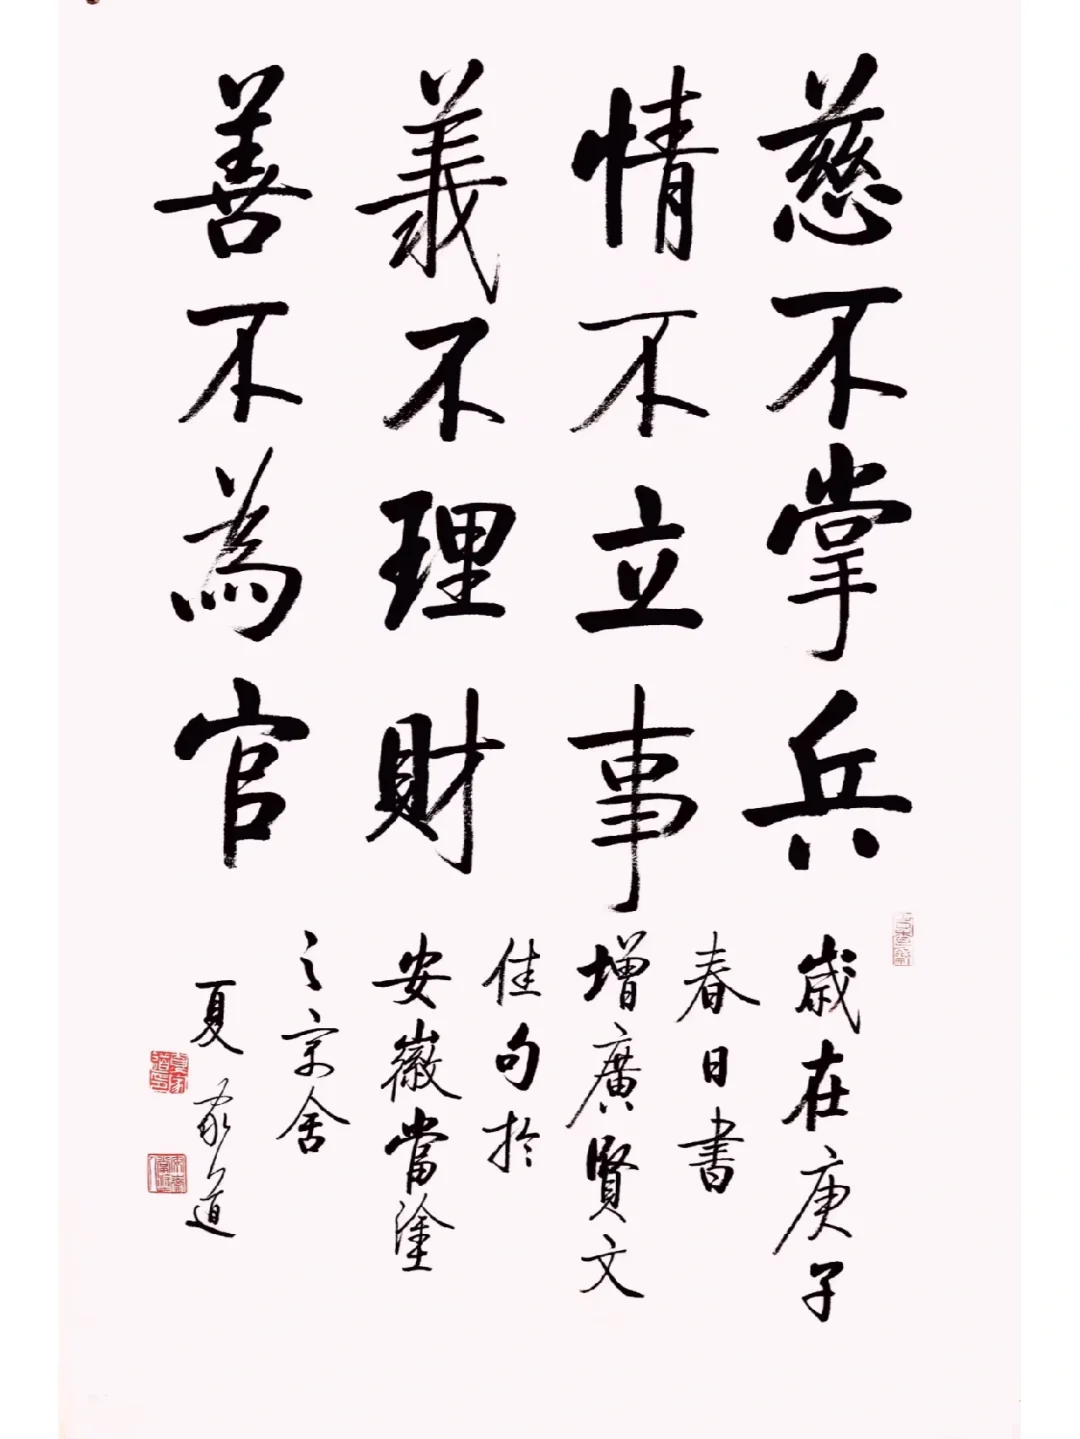 慈不掌兵
情不立事
義不理財
善不為官
歲在庚子
春日書
增廣賢文
佳句於
安徽當塗
之寓舍
夏家道